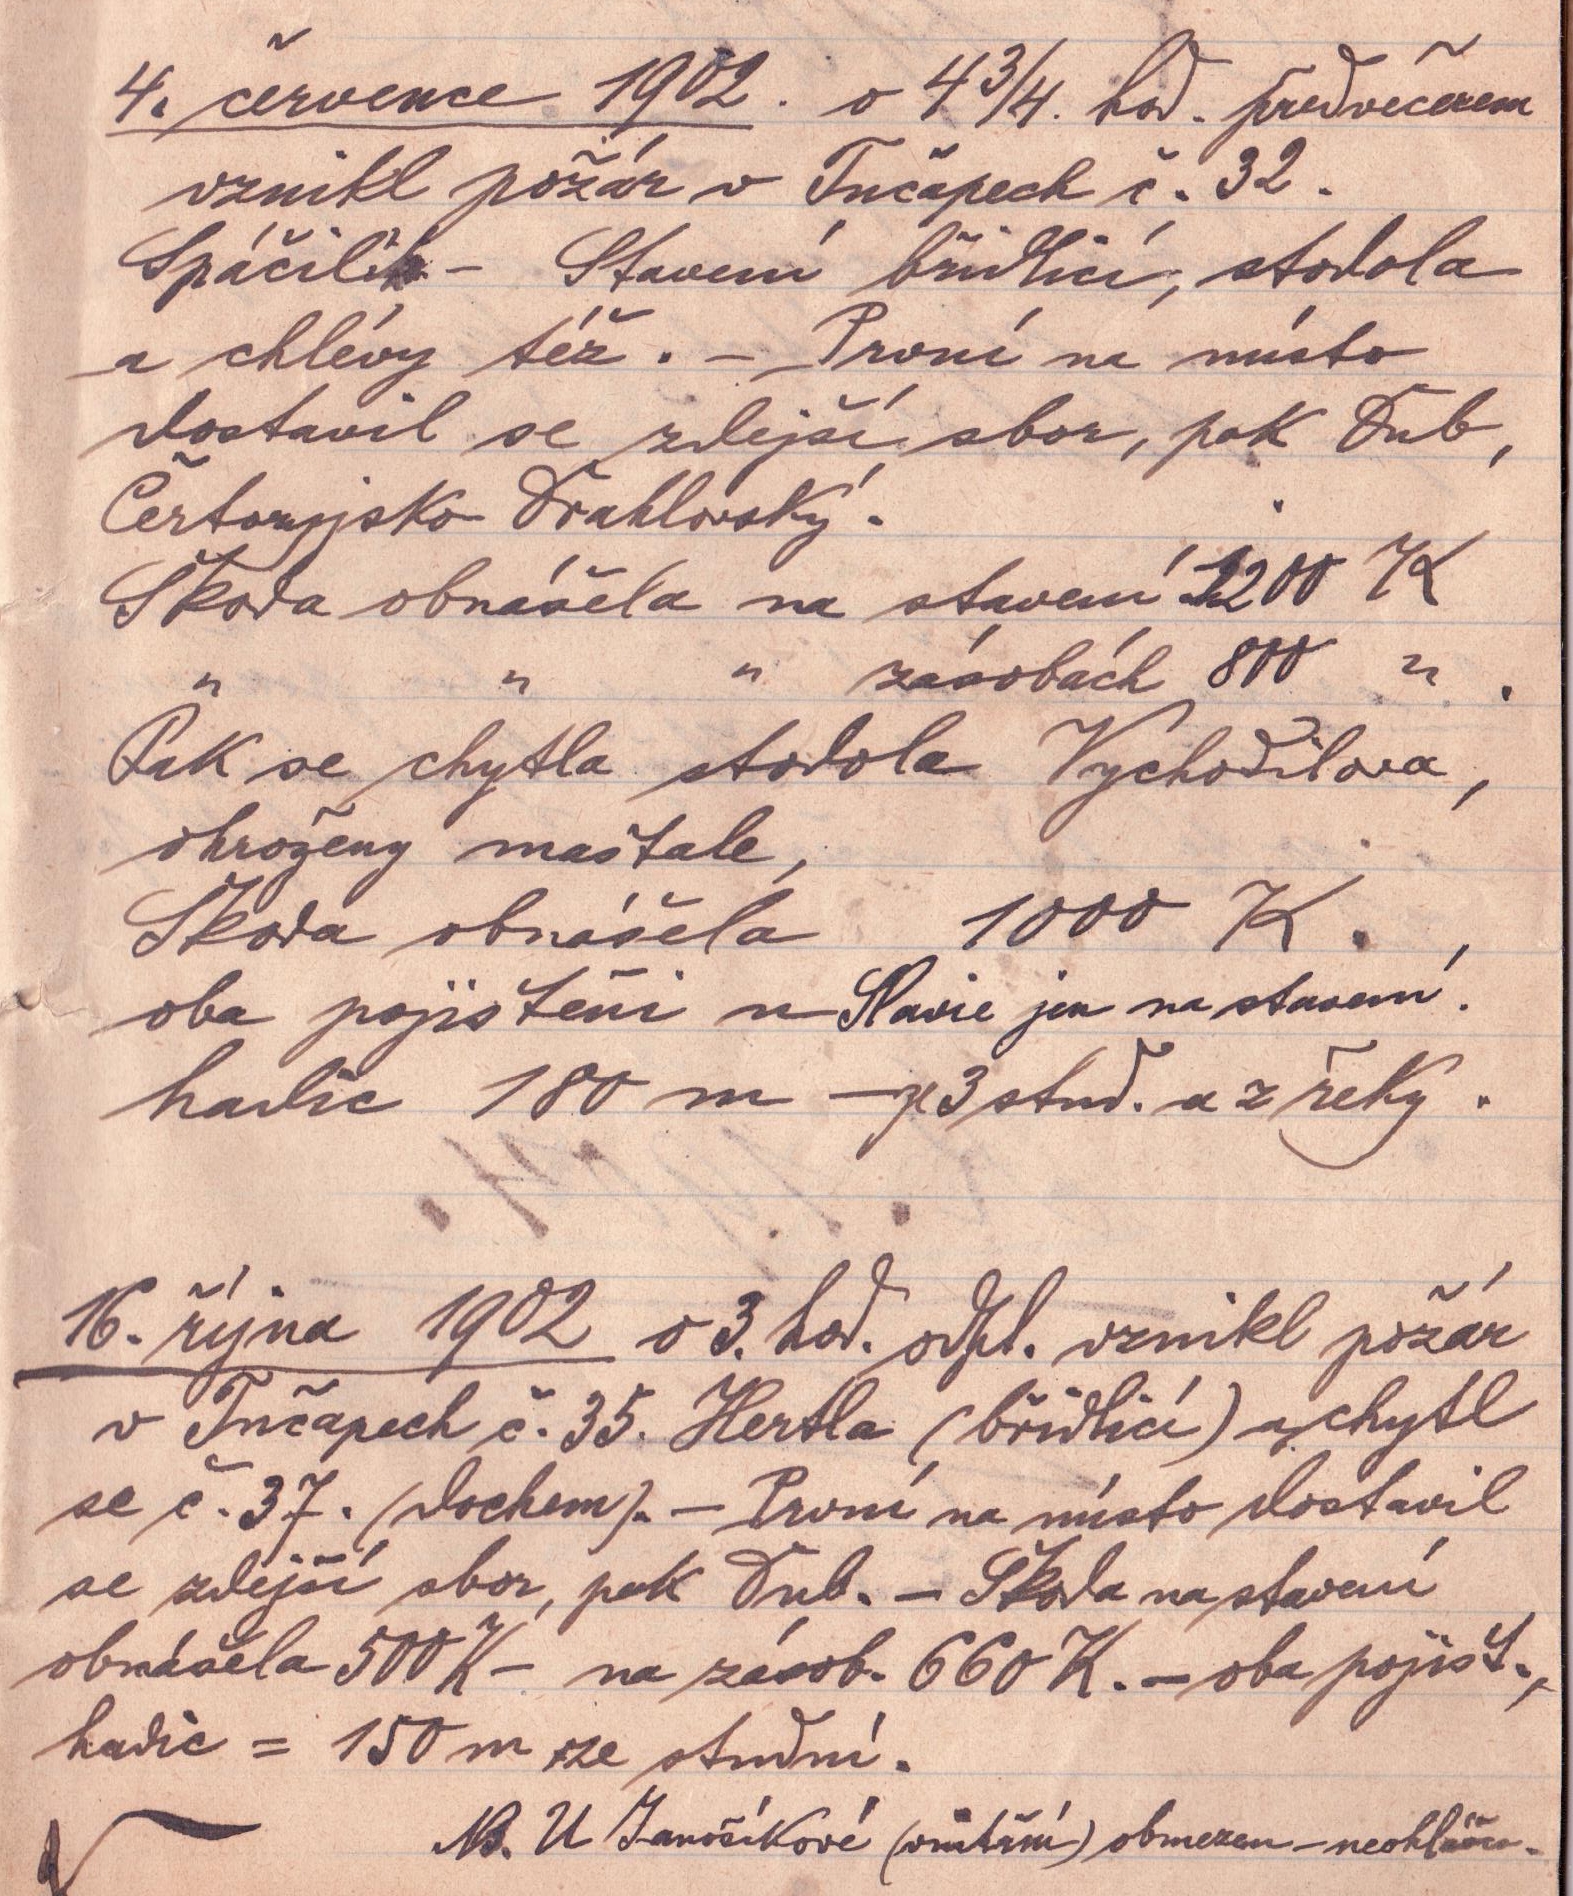 4. července 1902. o 4 3/4. hod. předvečerem
vznikl požár v Tučapech č. 32.
Spáčilík - Stavení břidlicí, stodola
a chlévy též. - První na místo
dostavil se zdejší sbor, pak Dub,
Čertoryjsko Drahlovský.
Škoda obnášela na stavení 1200 K
" " " zásobách 800 " .
Pak se chytla stodola Vychodilova,
ohroženy maštale,
Škoda obnášela 1000 K.
oba pojištěni u Slavie jen na stavení.
hadic 180 m - z 3 stud. a z řeky.
16. října 1902 o 3. hod. odpl. vznikl požár
v Tučapech č. 35. Hertla (břidlicí) a chytl
se č. 37. (dochem). - První na místo dostavil
se zdejší sbor, pak Dub. - Škoda na stavení
obnášela 500 K - na zásob. 660 K. - oba pojišt.,
hadic = 150 m ze studní.
NB. U Janošíkové (vnitřní) obmezen -